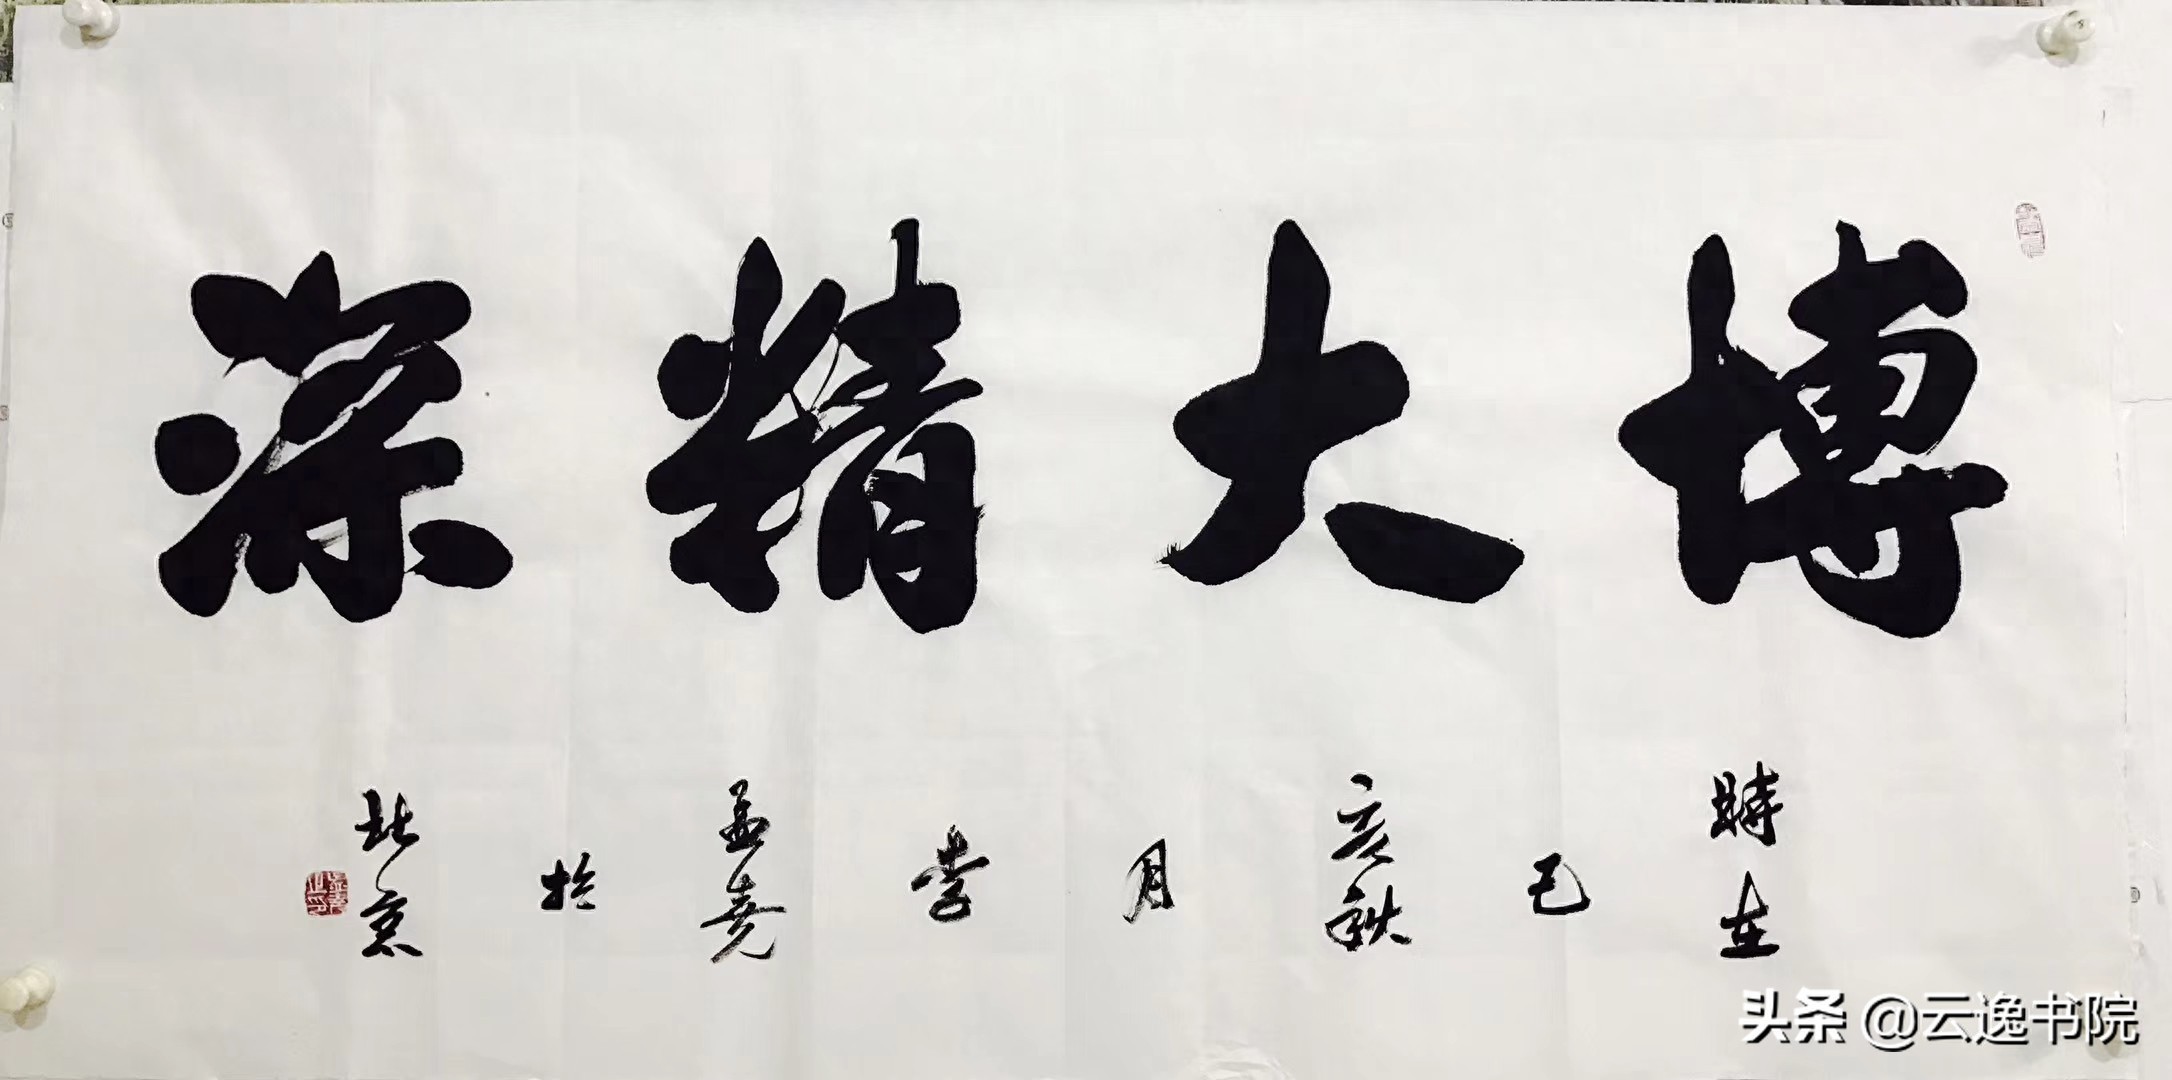 博大精深
時在己亥秋月李孟尧於北京
头条 @云逸书院